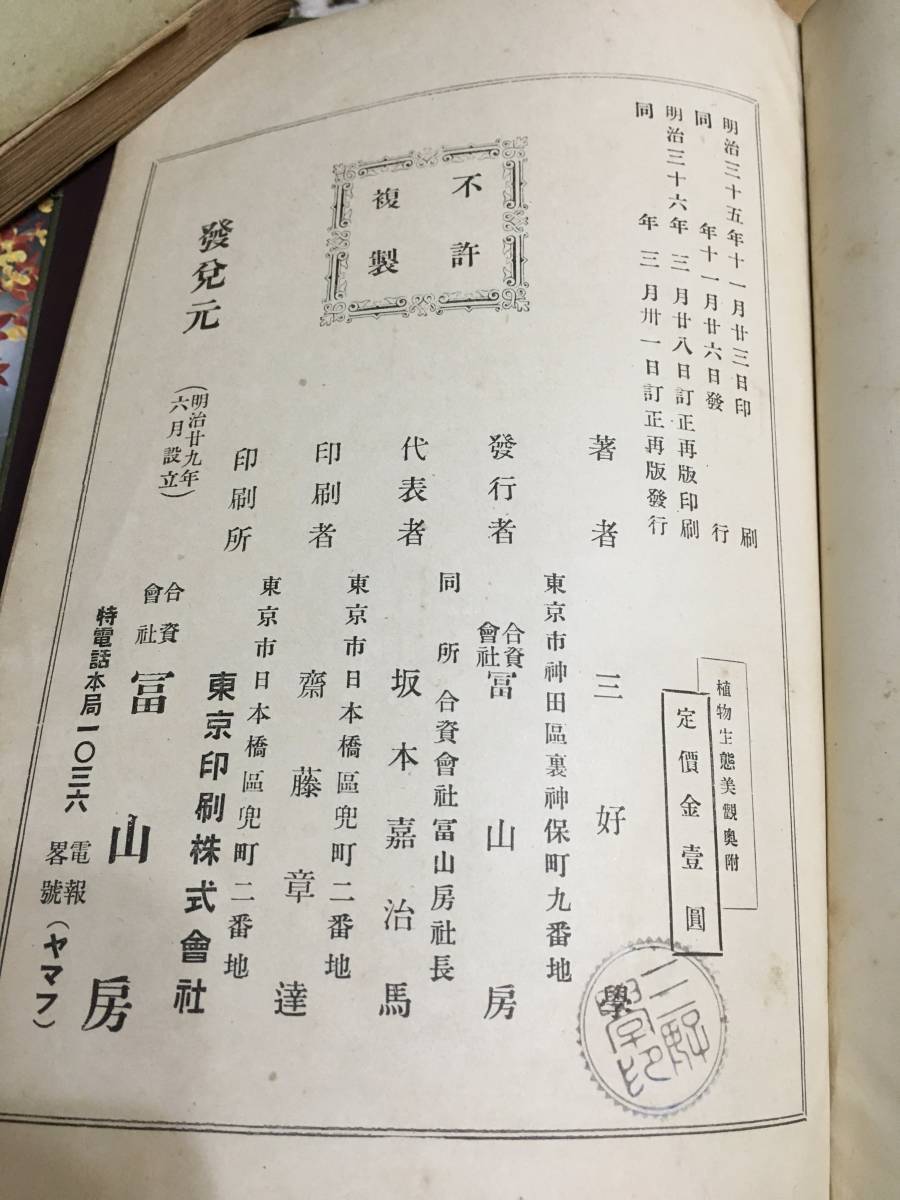 明治三十五年十一月廿三日印刷
同年十一月廿六日發行
明治三十六年三月廿八日訂正再版印刷
同年三月卅一日訂正再版發行
植物生態美觀奧附
定價金壹圓
不許
複製
著者
三好學
三好學印
東京市神田區裏神保町九番地
發行者
合資
會社
冨山房
同所合資會社冨山房社長
代表者
坂本嘉治馬
東京市日本橋區兜町二番地
印刷者
齋藤章達
東京市日本橋區兜町二番地
印刷所
東京印刷株式會社
發兌元
(明治廿九年
六月設立)
合資
會社
冨山房
特電話本局一〇三六
電報
畧號
(ヤマフ)